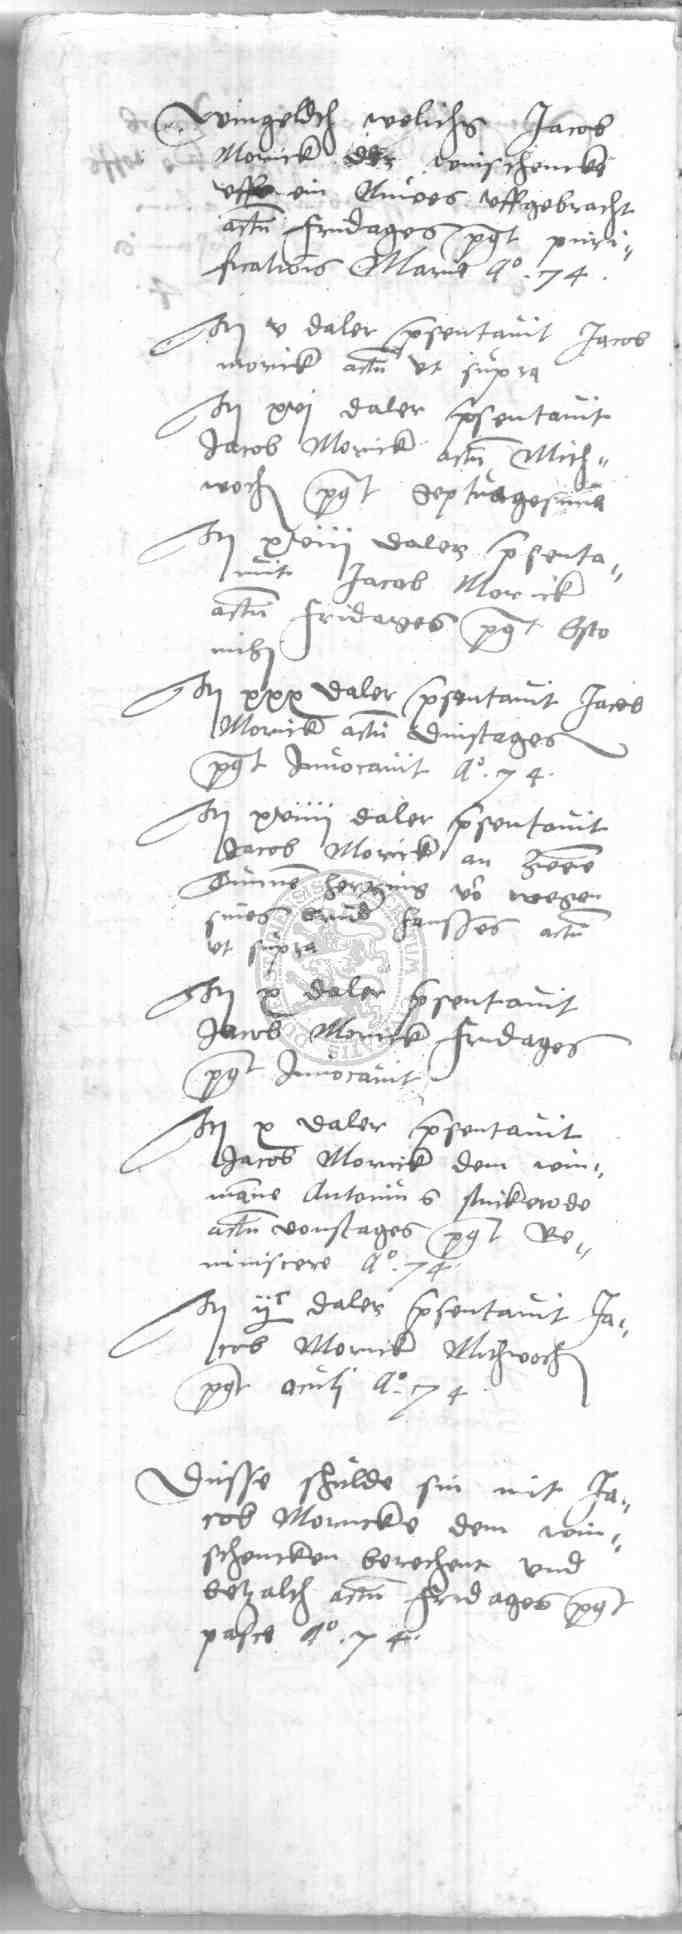 Wingeldth welichs Jacob
Morick der winschencke
uff ein Nuwes uffgebracht
actum fridages post puri-
ficationis Marie Ao. 74.
Itz v daler presentavit Jacob
morick actum ut supra
Itz xvj daler presentavit
Jacob Morick actum Mith-
woch post Septuagesima
Itz xviiij daler presenta-
vit Jacob Morick
actum fridages post Esto
mihi
Itz xxx daler presentavit Jacob
Morick actum Dinstages
post Invocavit Ao. 74.
Itz xviiij daler presentavit
Jacob Morick an
von wegen
sines hansses actum
ut supra
Itz x daler presentavit
Jacob Morick fridages
post Invocavit
Itz x daler presentavit
Jacob Morick dem win-
manne Antonius
actum donstages post Re-
miniscere Ao. 74.
Itz ijc daler presentavit Ja-
cob Morick Mithwoch
post oculi Ao. 74.
Dusse schulde sin mit Ja-
cob Moricke dem win-
schencken berechent und
betzalth actum fridages post
pasce Ao. 74.